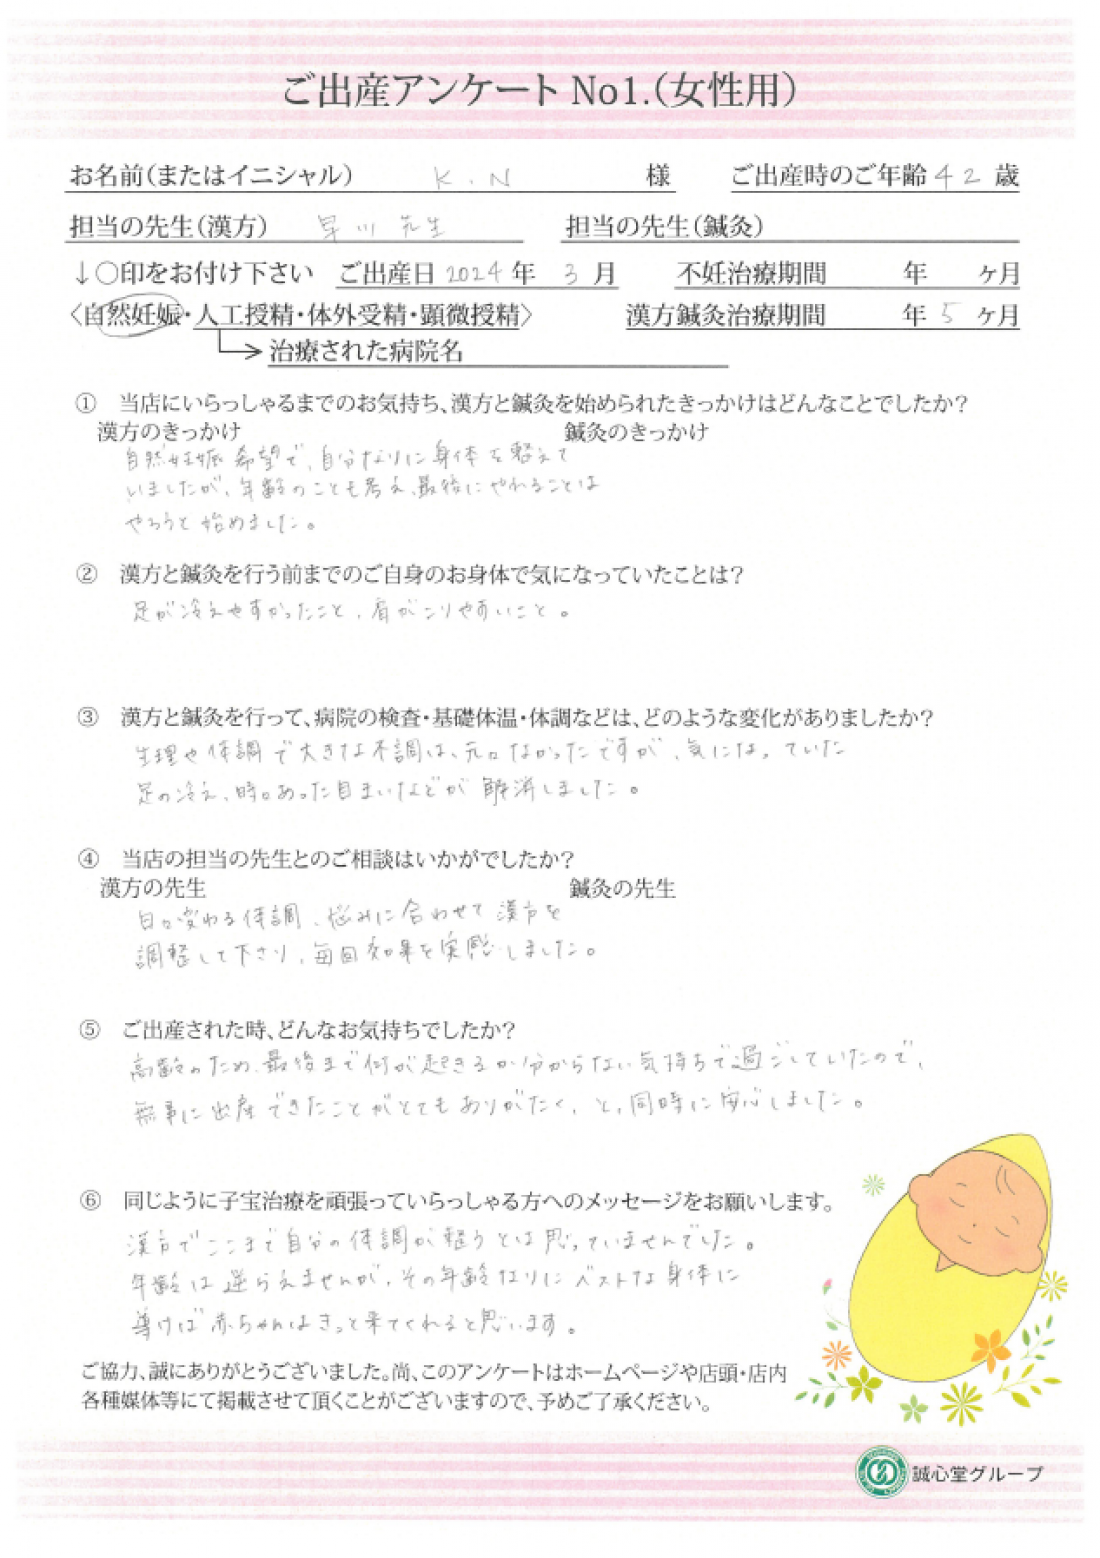 ご出産アンケート No1.(女性用)
お名前(またはイニシャル) K.N 様 ご出産時のご年齢 42 歳
担当の先生(漢方) 早川 先生 担当の先生(鍼灸)
↓○印をお付け下さい ご出産日 2024 年 3 月 不妊治療期間 年 ヶ月
〈自然妊娠・人工授精・体外受精・顕微授精〉 漢方鍼灸治療期間 年 5 ヶ月
治療された病院名
① 当店にいらっしゃるまでのお気持ち、漢方と鍼灸を始められたきっかけはどんなことでしたか?
漢方のきっかけ 鍼灸のきっかけ
自然妊娠希望で、自分なりに身体を整えて
いましたが、年齢のことも考え、最後にやれることは
やろうと始めました。
② 漢方と鍼灸を行う前までのご自身のお身体で気になっていたことは?
足が冷えやすかったこと、肩がこりやすいこと。
③ 漢方と鍼灸を行って、病院の検査・基礎体温・体調などは、どのような変化がありましたか?
生理や体調で大きな不調は、元々なかったですが、気になっていた
足の冷え、時々あった目まいなどが解消しました。
④ 当店の担当の先生とのご相談はいかがでしたか?
漢方の先生 鍼灸の先生
日々変わる体調、悩みに合わせて漢方を
調整して下さり、毎回効果を実感しました。
⑤ ご出産された時、どんなお気持ちでしたか?
高齢のため、最後まで何が起きるか分からない気持ちで過ごしていたので、
無事に出産できたことがとてもありがたく、と、同時に安心しました。
⑥ 同じように子宝治療を頑張っていらっしゃる方へのメッセージをお願いします。
漢方でここまで自分の体調が整うとは思っていませんでした。
年齢は逆らえませんが、その年齢なりにベストな身体に
導けば赤ちゃんはきっと来てくれると思います。
ご協力、誠にありがとうございました。尚、このアンケートはホームページや店頭・店内
各種媒体等にて掲載させて頂くことがございますので、予めご了承ください。
誠心堂グループ